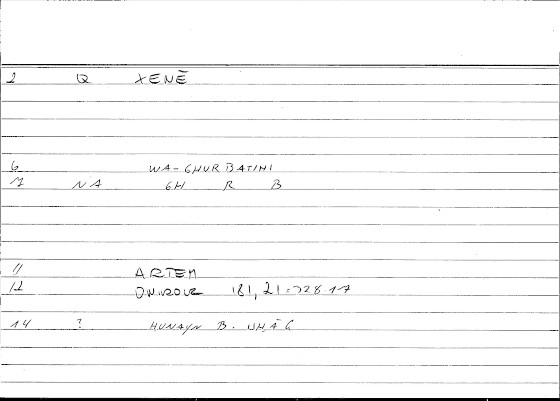 2 Q XENĒ
6 WA-GHURBATIHI
7 NA GH R B
11 ARTEM
12 ONIROCR 181, 21 = 328.17
14 ? HUNAYN B. ISḤĀQ